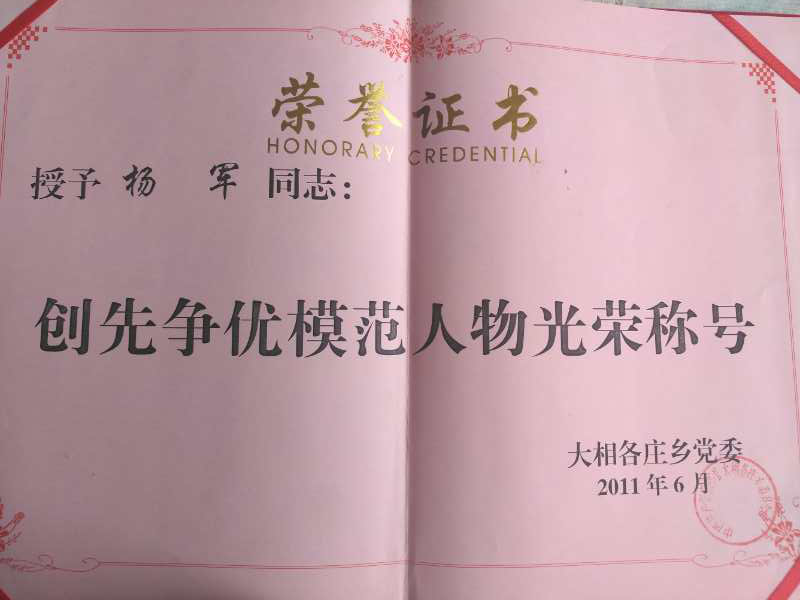 荣誉证书
HONORARY CREDENTIAL
授予 杨 军 同志：
创先争优模范人物光荣称号
大相各庄乡党委
2011年6月